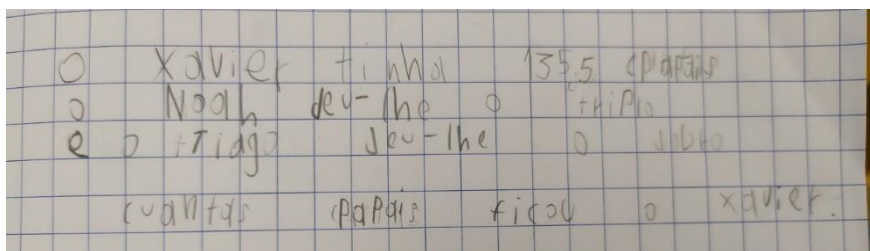 O Xavier tinha 135,5 cpapais
O Noah deu-lhe o triplo
e o Tiago deu-lhe o dobro
cuantas cpapais ficou o xavier.